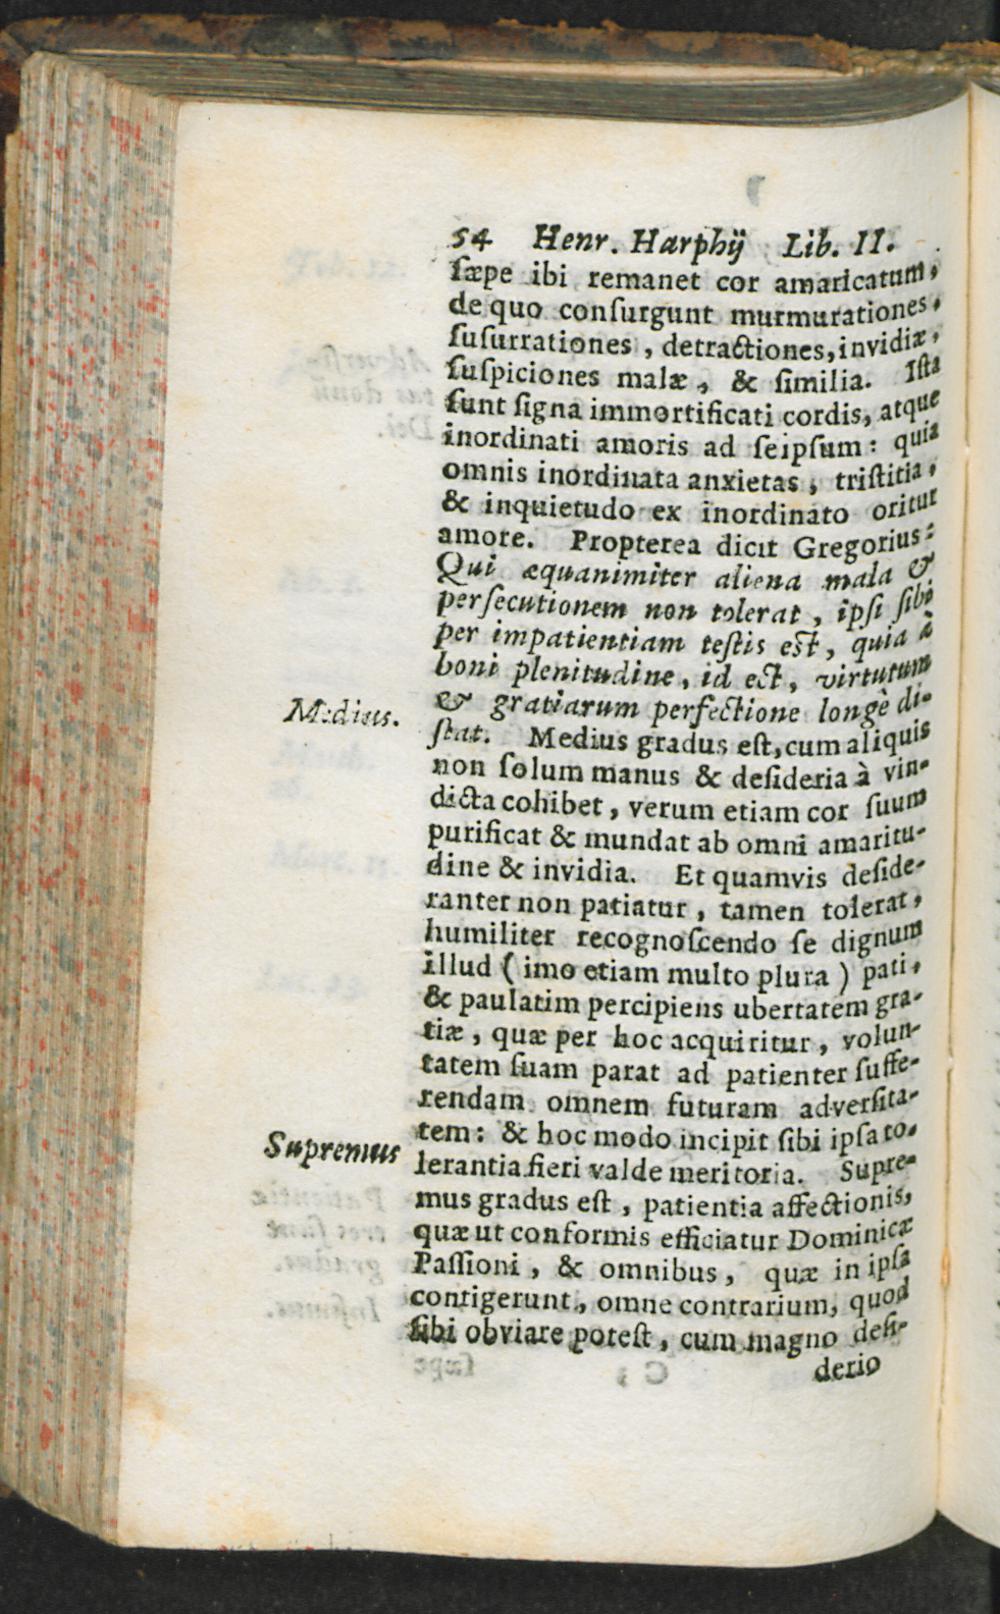 54 Henr. Harphij Lib. II.
sæpe ibi remanet cor amaricatum,
de quo consurgunt murmurationes,
susurrationes, detractiones, invidiæ,
suspiciones malæ, & similia. Ista
sunt signa immortificati cordis, atque
inordinati amoris ad seipsum: quia
omnis inordinata anxietas, tristitia,
& inquietudo ex inordinato oritur
amore. Propterea dicit Gregorius:
Qui æquanimiter aliena mala &
persecutionem non tolerat, ipsi sibi
per impatientiam testis est, quia à
boni plenitudine, id est, virtutum
& gratiarum perfectione longè di-
Medius.
stat. Medius gradus est, cum aliquis
non solum manus & desideria à vin-
dicta cohibet, verum etiam cor suum
purificat & mundat ab omni amaritu-
dine & invidia. Et quamvis deside-
ranter non patiatur, tamen tolerat,
humiliter recognoscendo se dignum
illud (imo etiam multo plura) pati,
& paulatim percipiens ubertatem gra-
tiæ, quæ per hoc acquiritur, volun-
tatem suam parat ad patienter suffe-
rendam omnem futuram adversita-
tem: & hoc modo incipit sibi ipsa to-
Supremus
lerantia fieri valde meritoria. Supre-
mus gradus est, patientia affectionis,
quæ ut conformis efficiatur Dominicæ
Passioni, & omnibus, quæ in ipsa
contigerunt, omne contrarium, quod
sibi obviare potest, cum magno desi-
derio